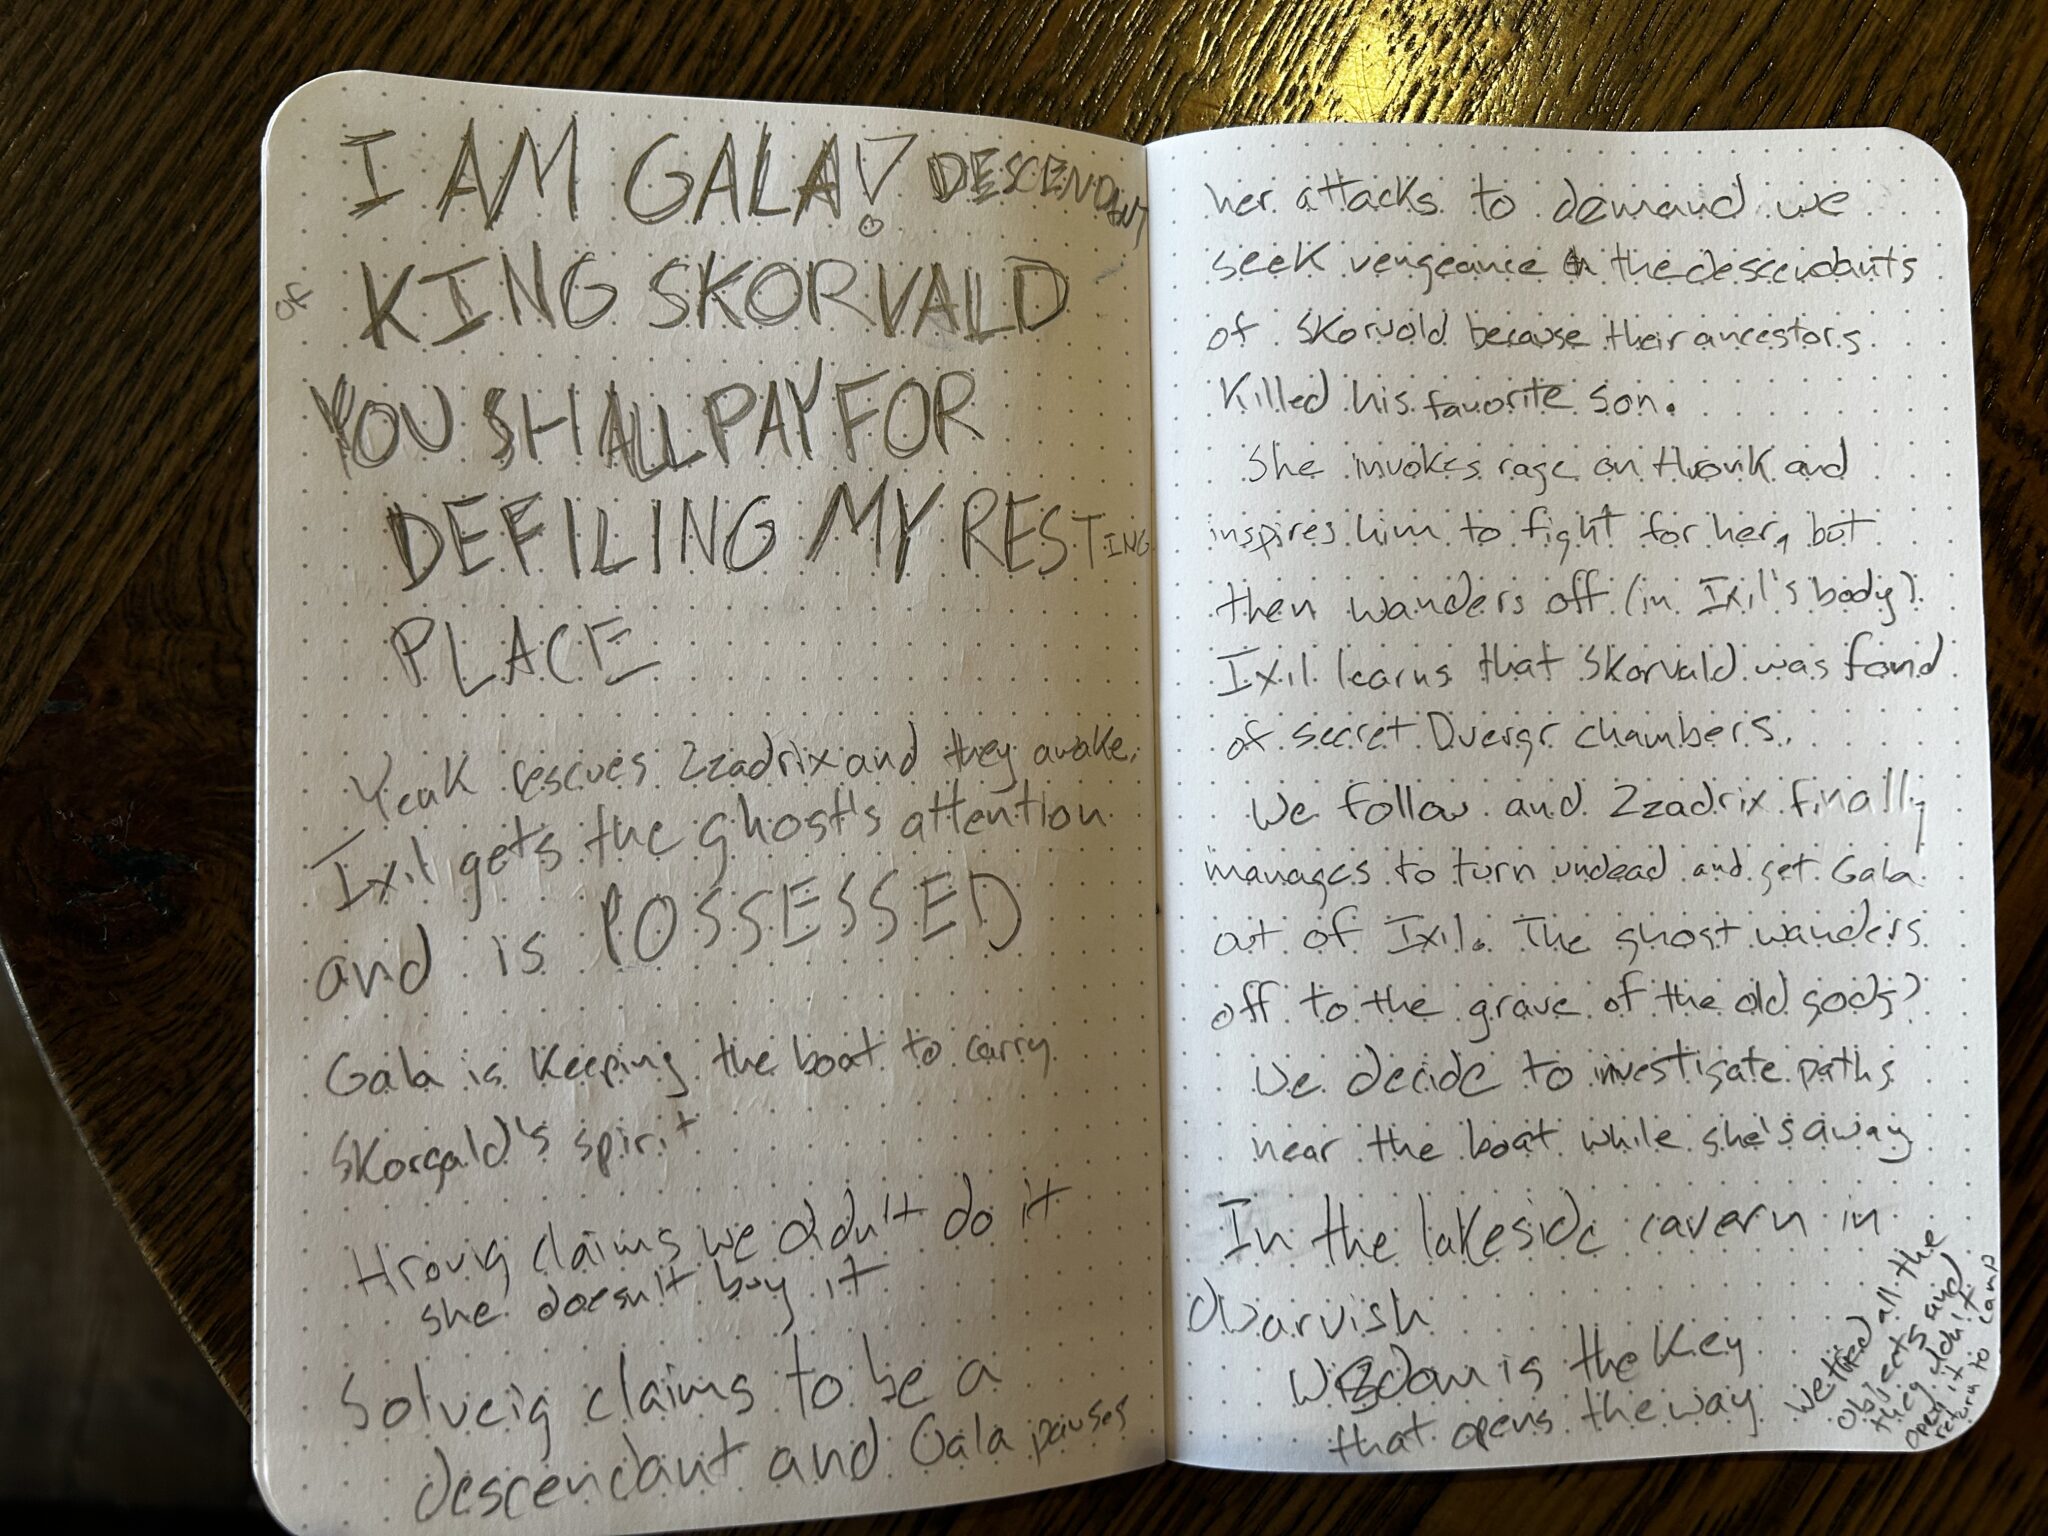 I AM GALA! DESCENDANT
OF KING SKORVALD
YOU SHALL PAY FOR
DEFILING MY RESTING
PLACE
Yeak rescues Zzadrix and they awake.
Ixil gets the ghost's attention
and is POSSESSED
Gala is keeping the boat to carry
Skorgald's spirit
Hrovig claims we didn't do it
she doesn't buy it
Solveig claims to be a
descendant and Gala pauses
her attacks to demand we
seek vengeance on the descendants
of Skorvold because their ancestors
killed his favorite son.
She invokes rage on and
inspires him to fight for her, but
then wanders off (in Ixil's body).
Ixil learns that Skorvald was fond
of secret Dvergr chambers.
We follow and Zzadrix finally
manages to turn undead and get Gala
out of Ixil. The ghost wanders
off to the grave of the old gods?
We decide to investigate paths
near the boat while she's away
In the lakeside cavern in
dwarvish
Wisdom is the key
that opens the way
We tried all the
objects and
they didn't
open it
return to camp